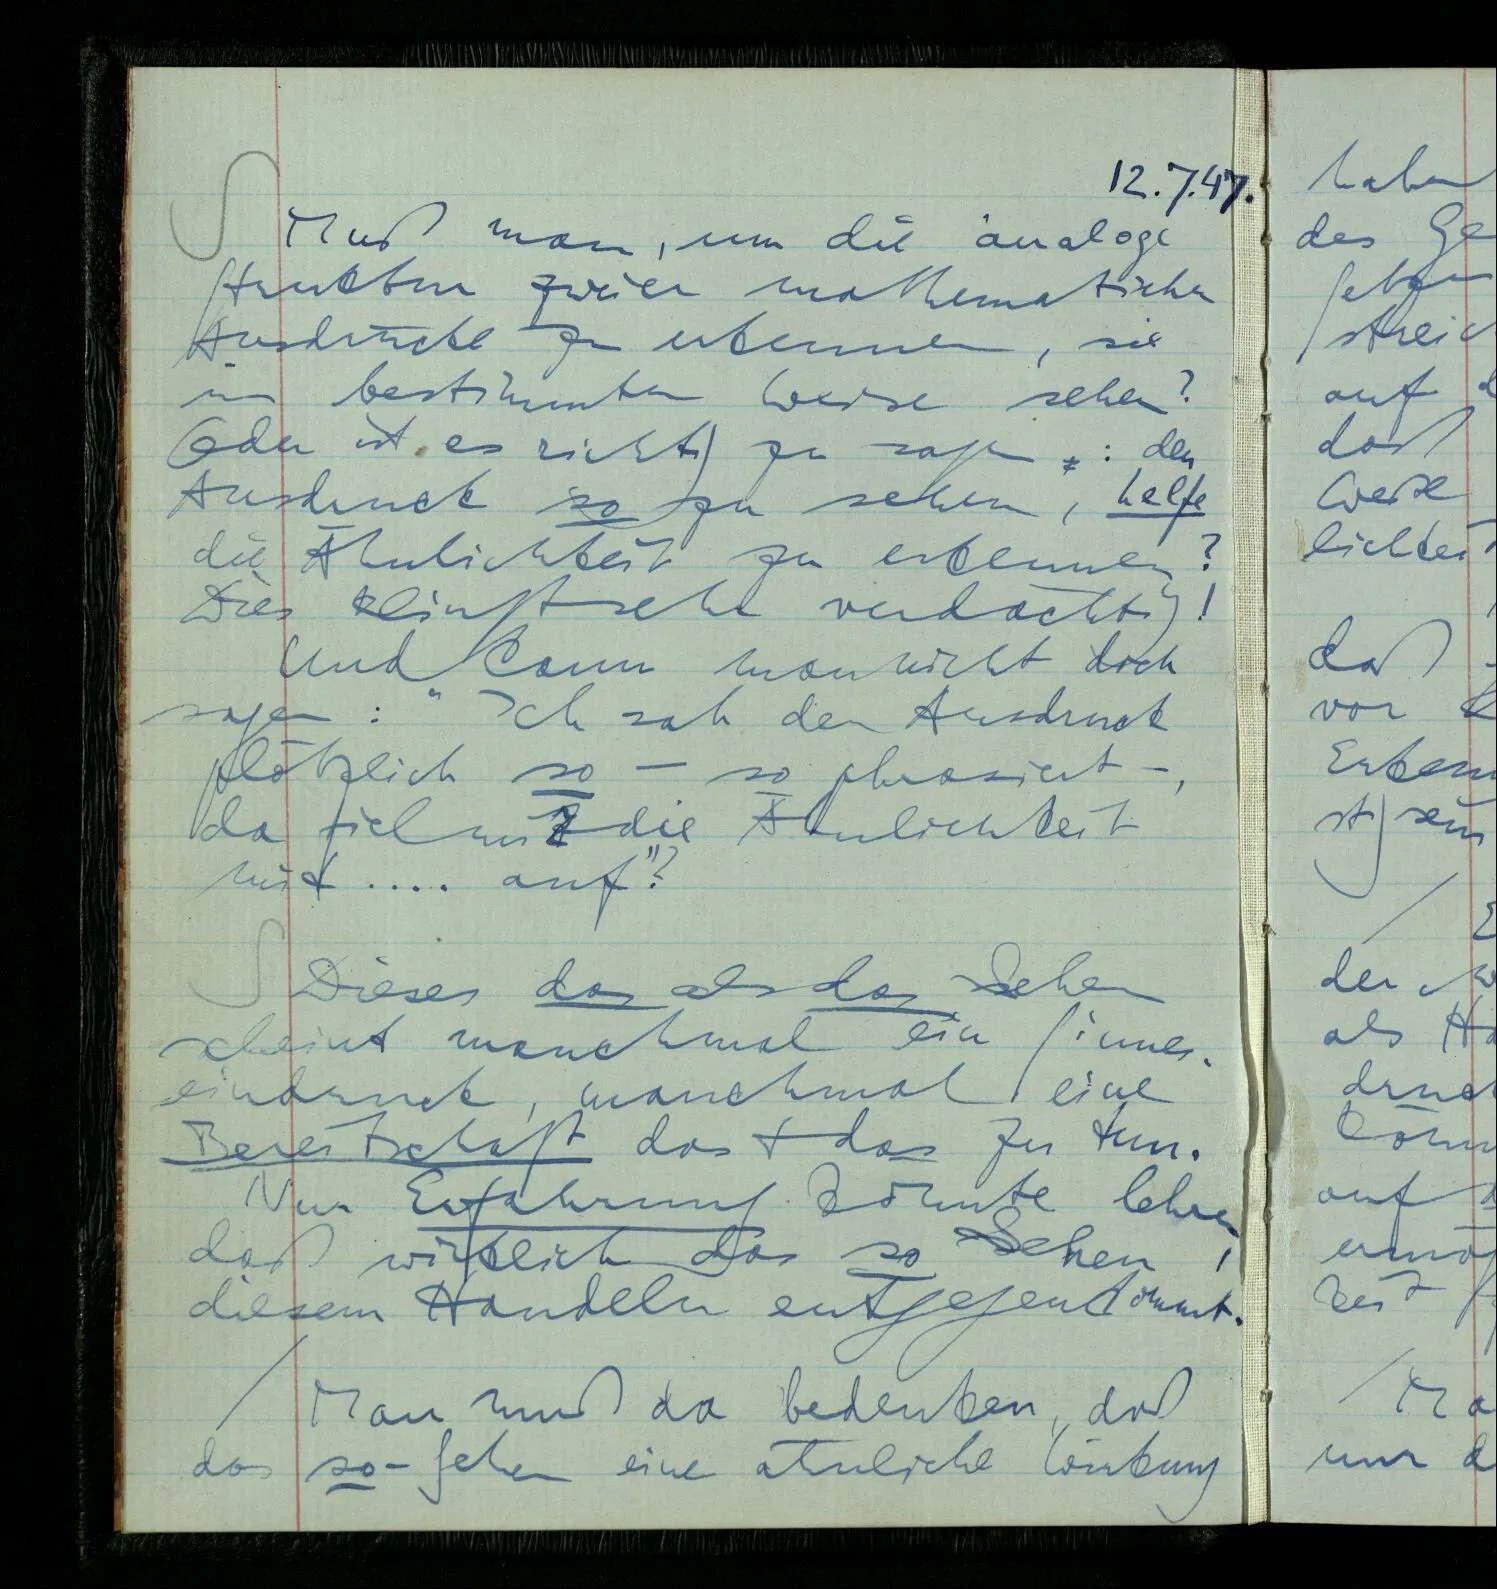 12.7.47.
Muß man, um die analoge
Struktur zweier mathematischer
Ausdrücke zu erkennen, sie
in bestimmter Weise sehen?
Oder ist es richtig zu sagen : den
Ausdruck so zu sehen, helfe
die Ähnlichkeit zu erkennen?
Dies klingt sehr verdächtig!
Und kann man nicht doch
sagen : "Ich sah den Ausdruck
plötzlich so – so phrasiert –,
da fiel mir die Ähnlichkeit
mit .... auf"?
Dieses das als das Sehen
scheint manchmal ein Sinnes-
eindruck, manchmal eine
Bereitschaft das + das zu tun.
Nur Erfahrung könnte lehren
daß wirklich das so Sehen
diesem Handeln entgegenkommt.
/ Man muß da bedenken, daß
das so-Sehen eine ähnliche Wirkung
haben
des Ge
auf d
daß
Weise
lichkeit
daß
vor
der
als
auf
/ Ma
nur d